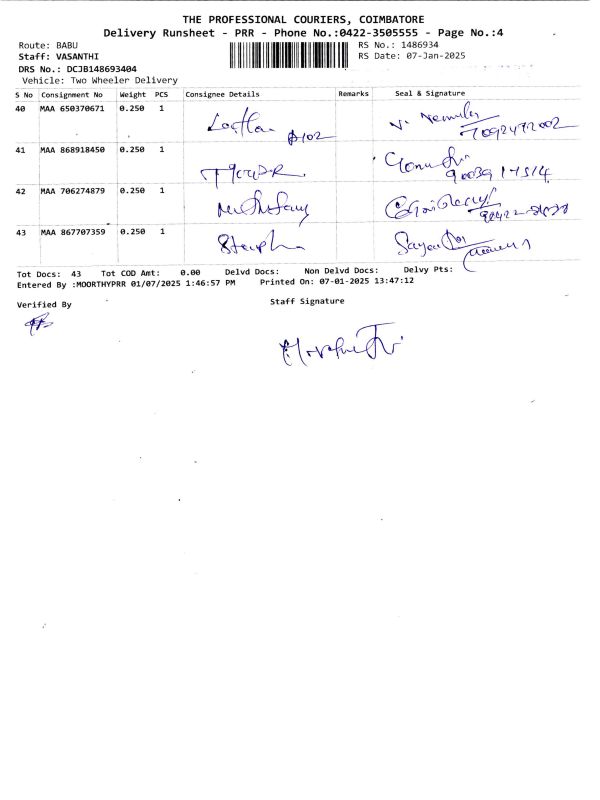 THE PROFESSIONAL COURIERS, COIMBATORE
Delivery Runsheet - PRR - Phone No.:0422-3505555 - Page No.:4
Route: BABU
RS No.: 1486934
Staff: VASANTHI
RS Date: 07-Jan-2025
DRS No.: DCJB148693404
Vehicle: Two Wheeler Delivery
S No Consignment No Weight PCS Consignee Details Remarks Seal & Signature
40 MAA 650370671 0.250 1
7092472002
41 MAA 868918450 0.250 1
42 MAA 706274879 0.250 1
43 MAA 867707359 0.250 1
Tot Docs: 43 Tot COD Amt: 0.00 Delvd Docs: Non Delvd Docs: Delvy Pts:
Entered By :MOORTHYPRR 01/07/2025 1:46:57 PM Printed On: 07-01-2025 13:47:12
Verified By
Staff Signature